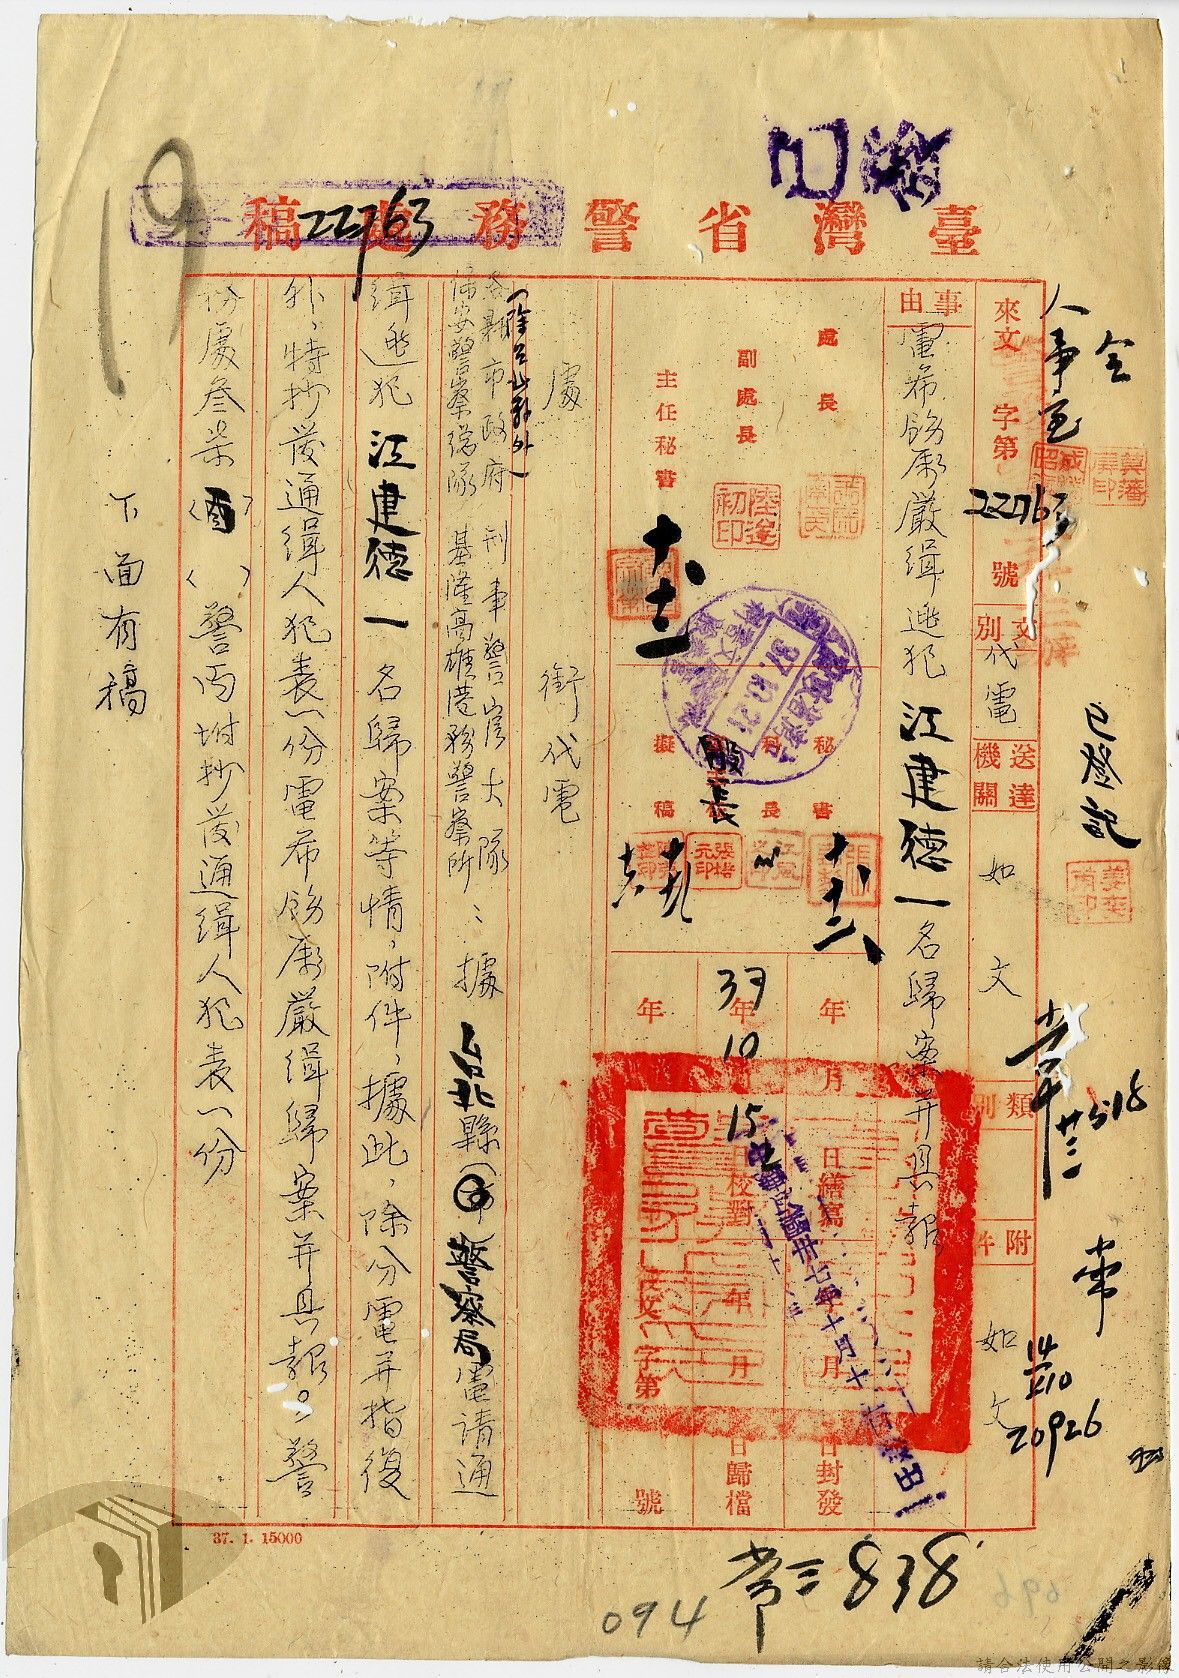 臺灣省警務處稿
22763
來文 字第 22763 號
文別 代電
送達機關 如文
類別
附件 如文
事由
電希飭屬嚴緝逃犯江建德一名歸案并具報
處長
副處長
主任秘書
秘書
科長
股長
擬稿
年 月 日繕寫
年 月 日封發
37年10月15日校對
年 月 日歸檔
年 文字第 號
中華民國卅七年十月十
處 銜代電
各縣市政府 刑事警察大隊
保安警察總隊 基隆高雄港務警察所:據台北縣(市)警察局電請通
緝逃犯江建德一名歸案等情,附件,據此,除分電并指復
外,特抄發通緝人犯表一份電希飭屬嚴緝歸案并具報。警
務處叁 警丙附抄發通緝人犯表一份
下面有稿
人事室
會
已登記
20926
37. 1. 15000
838
094
19
請合法使用公開之影像